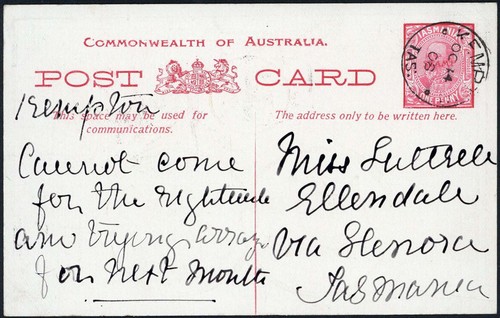 COMMONWEALTH OF AUSTRALIA.
POST CARD
TASMANIA
ONE PENNY
KEMP
OC 14
TAS.
This space may be used for
communications.
The address only to be written here.
Kempton
Cannot come
for the
am trying arrange
for next month
Miss Luttrell
Ellendale
Via Glenora
Tasmania